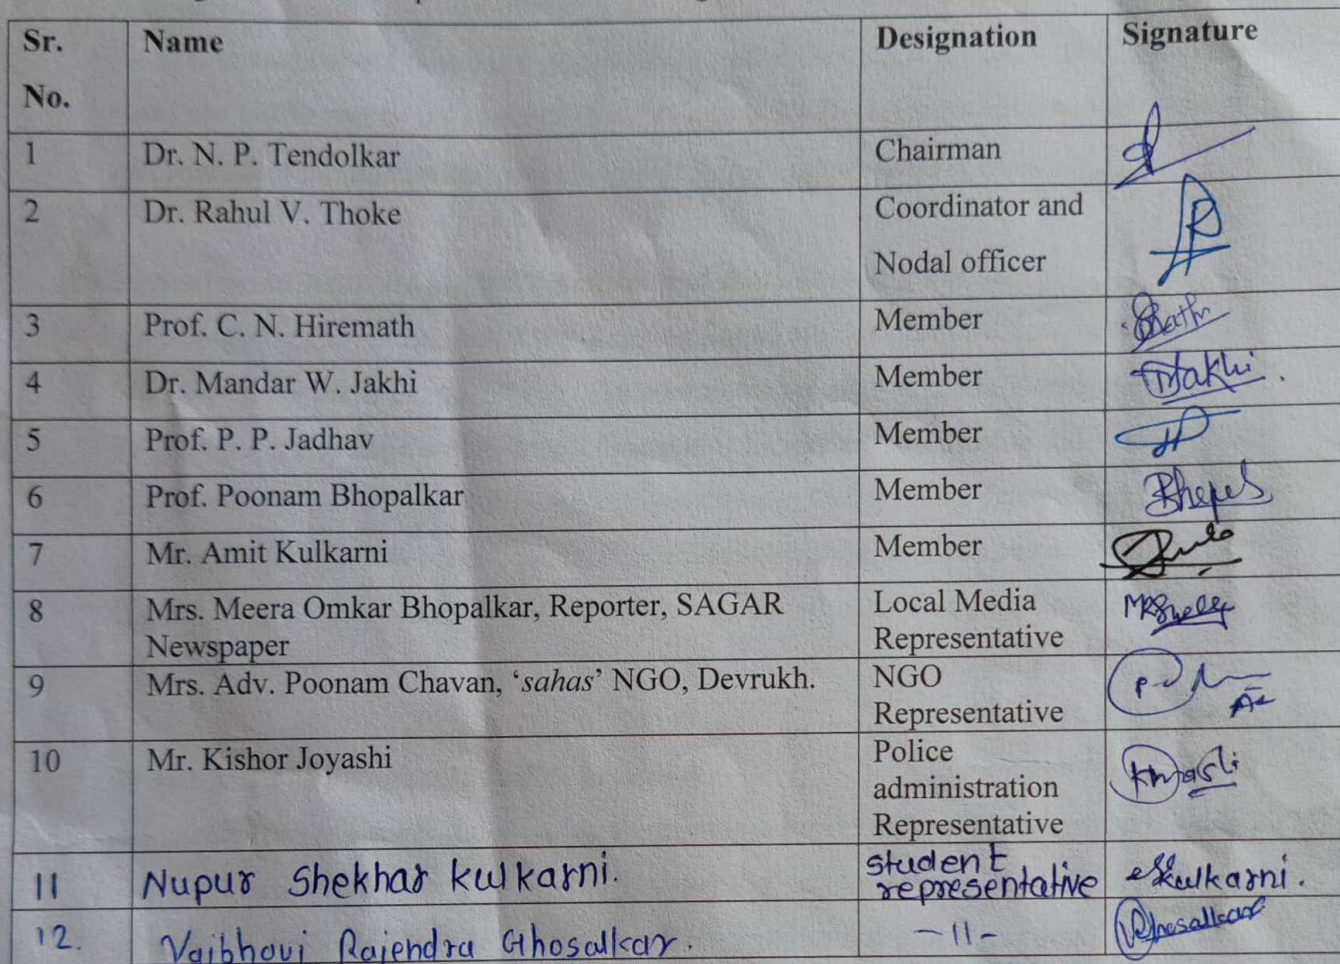 Sr. No. Name Designation Signature
1 Dr. N. P. Tendolkar Chairman
2 Dr. Rahul V. Thoke Coordinator and
Nodal officer
3 Prof. C. N. Hiremath Member
4 Dr. Mandar W. Jakhi Member
5 Prof. P. P. Jadhav Member
6 Prof. Poonam Bhopalkar Member
7 Mr. Amit Kulkarni Member
8 Mrs. Meera Omkar Bhopalkar, Reporter, SAGAR Local Media
Newspaper Representative
9 Mrs. Adv. Poonam Chavan, ‘sahas’ NGO, Devrukh. NGO
Representative
10 Mr. Kishor Joyashi Police
administration
Representative
11 Nupur Shekhar kulkarni. student
representative Kulkarni.
12. Vaibhavi Rajendra Ghosalkar. -11- Ghosalkar